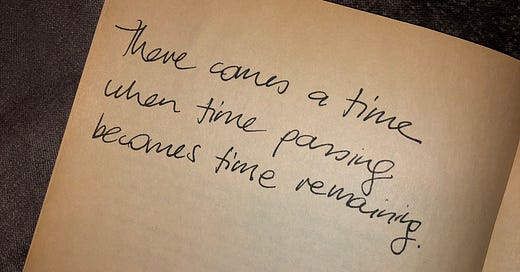 There comes a time
when time passing
becomes time remaining.